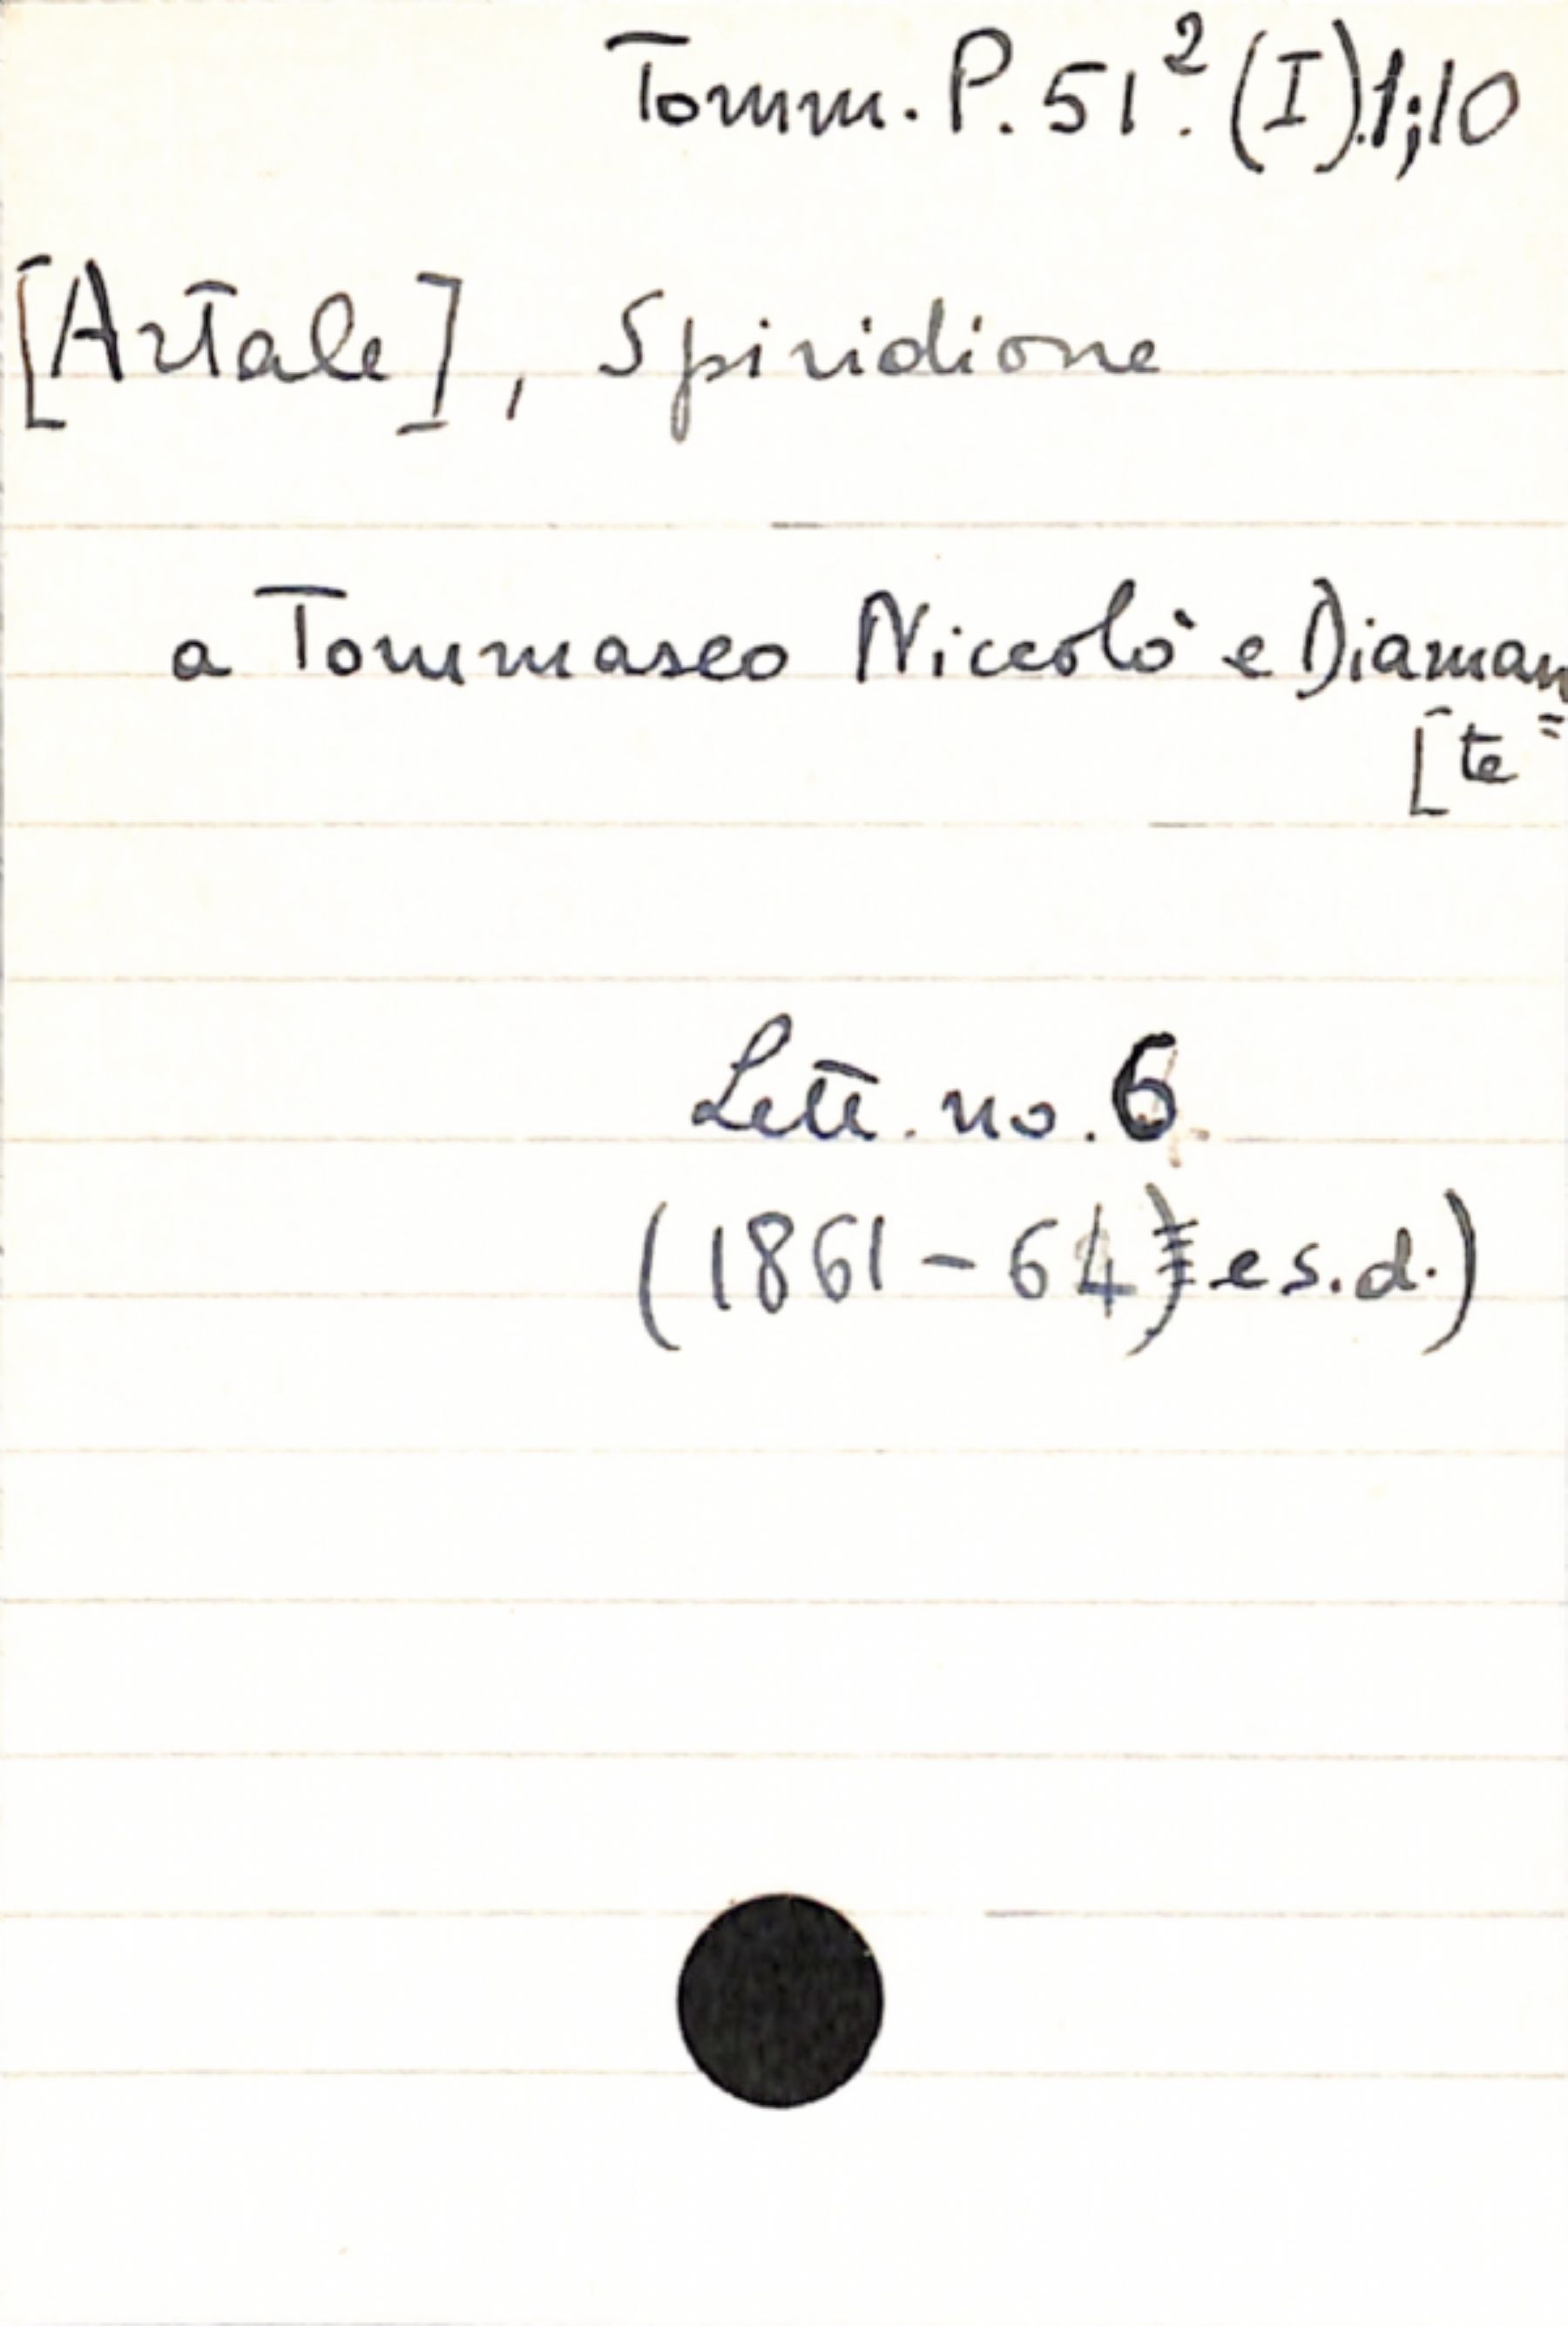 Tomm. P. 51.² (I).1;10
[Artale], Spiridione
a Tommaseo Niccolò e Diaman=
[te
Lett. no. 6
(1861-64) e s.d.)